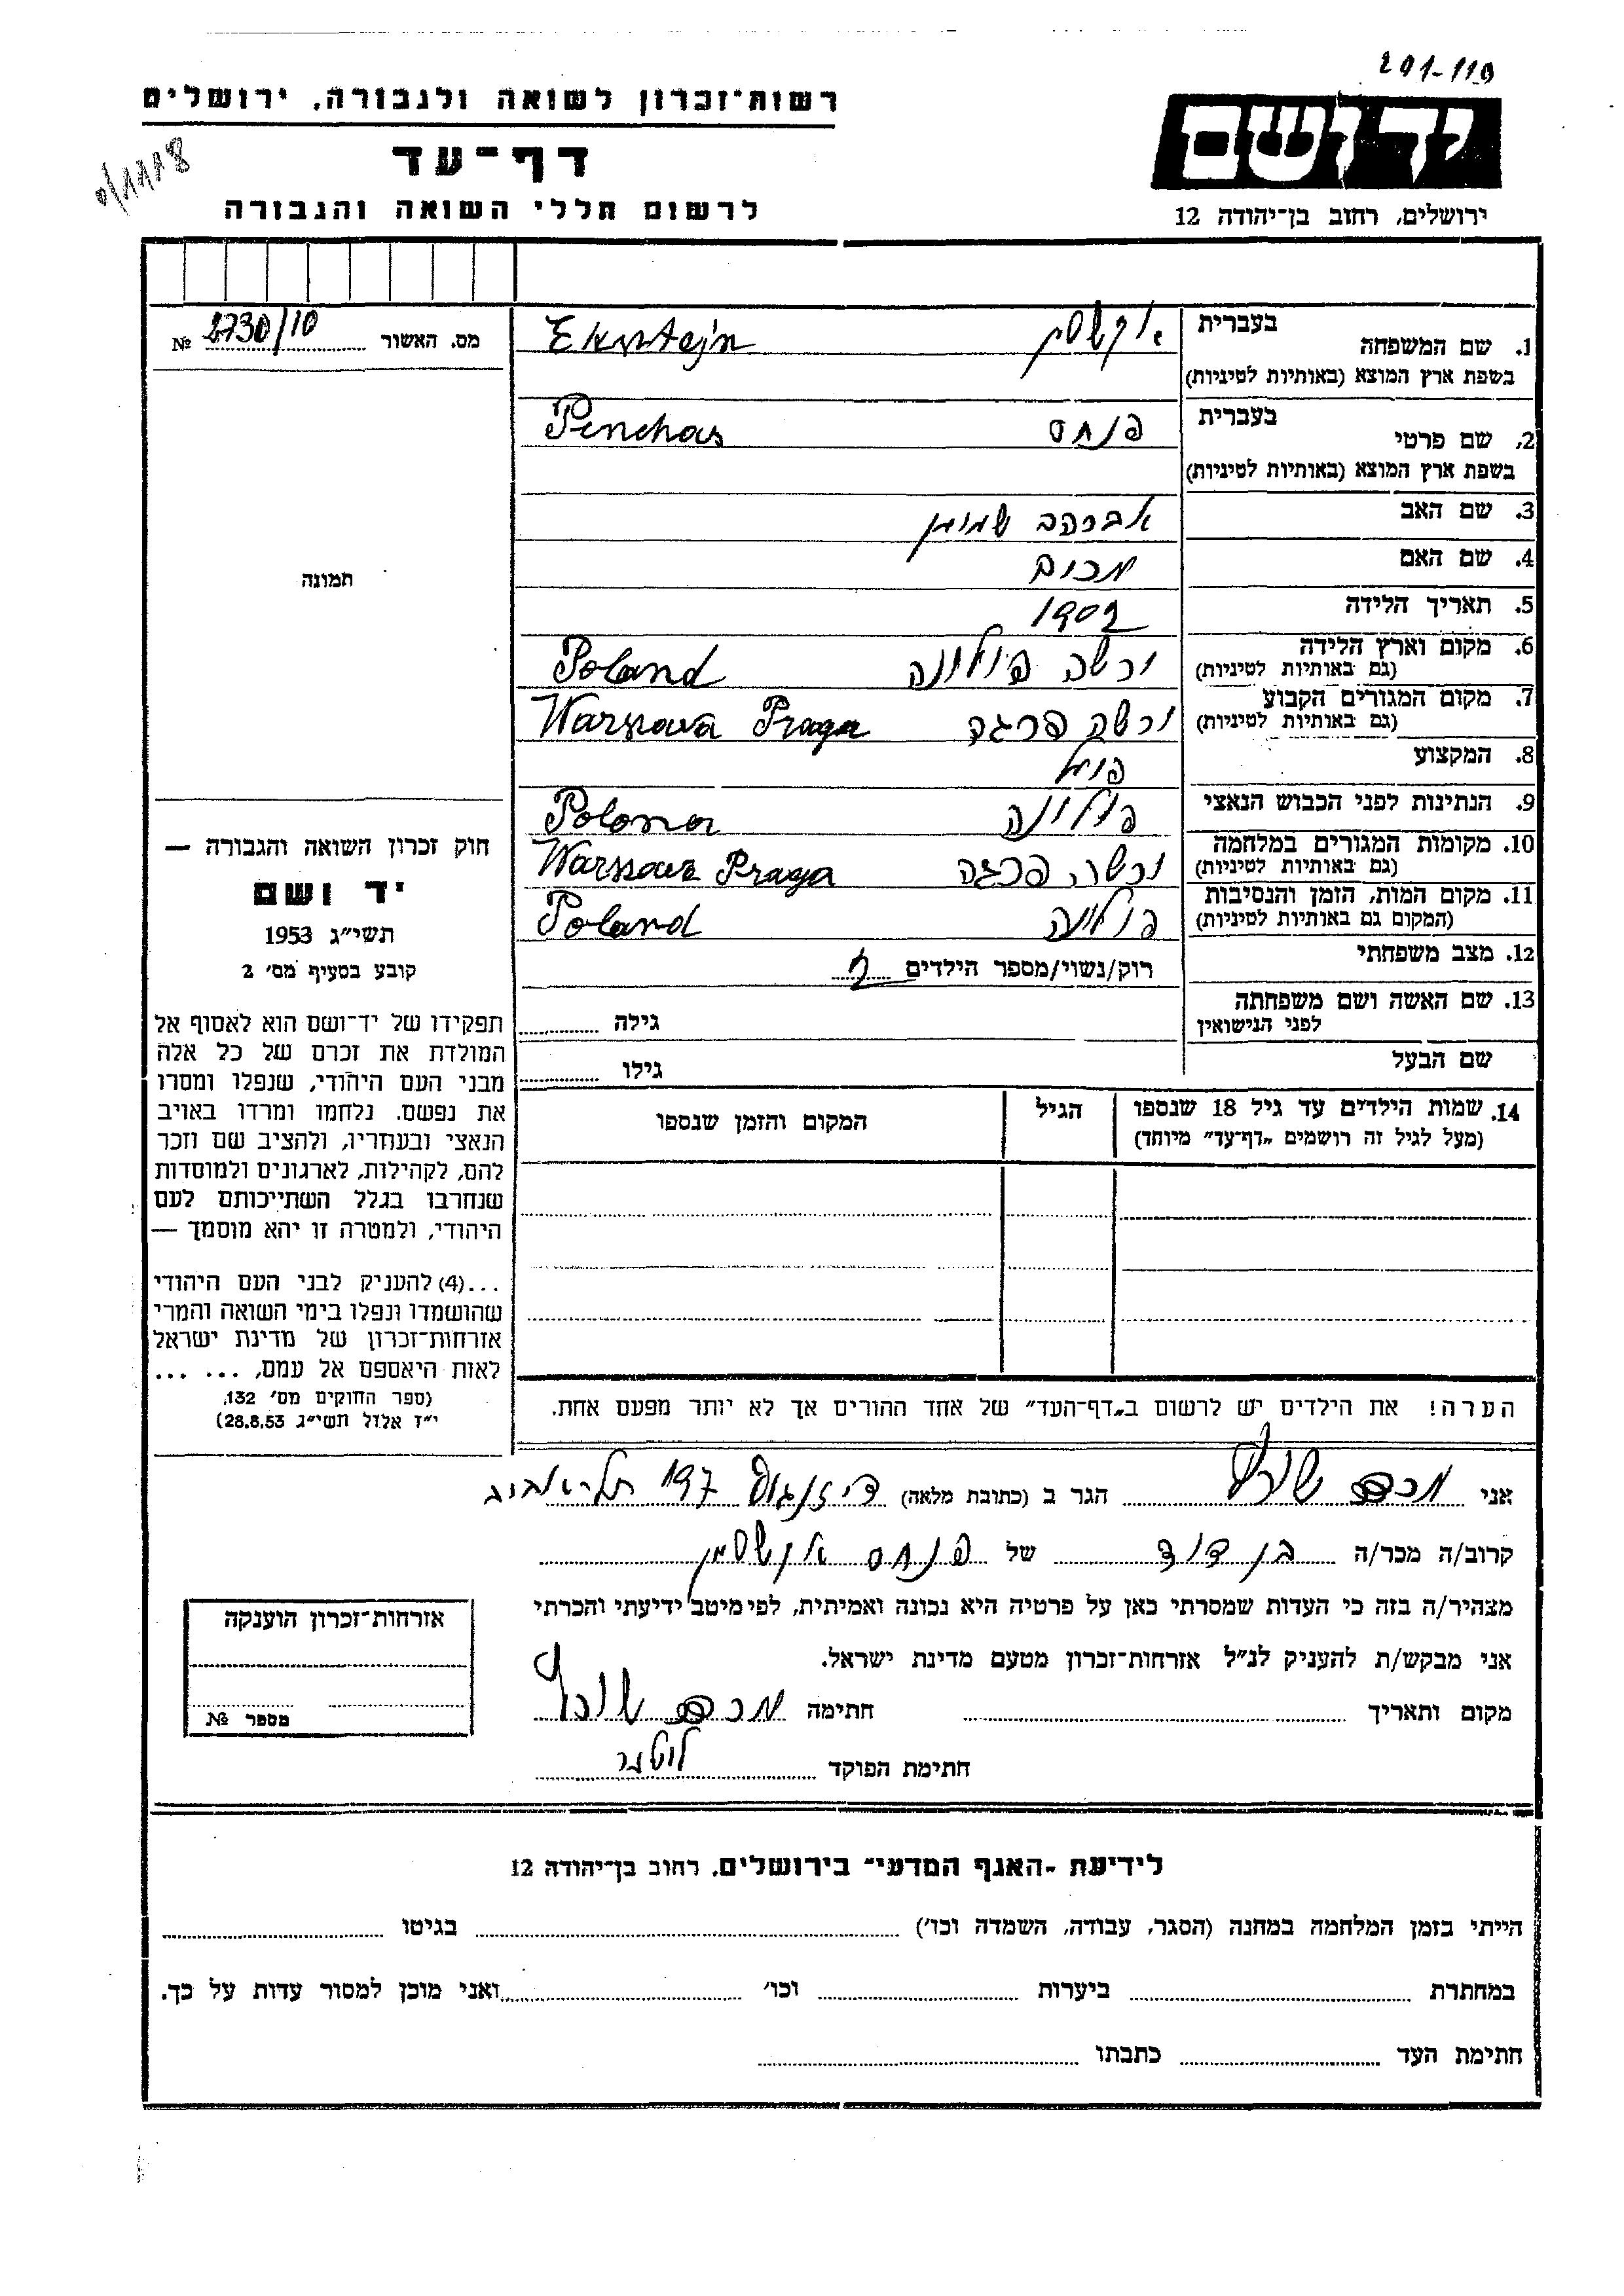 291-119
רשות־זכרון לשואה ולגבורה, ירושלים
יד ושם
דף־עד
לרשום חללי השואה והגבורה
ירושלים, רחוב בן־יהודה 12
מס. האשור 2730/10 №
1. שם המשפחה
בעברית
בשפת ארץ המוצא (באותיות לטיניות)
Eksstejn
2. שם פרטי
בעברית פנחס Penchas
בשפת ארץ המוצא (באותיות לטיניות)
3. שם האב אברהם
4. שם האם
5. תאריך הלידה 1902
6. מקום וארץ הלידה ורשה פולונה Poland
(גם באותיות לטיניות)
7. מקום המגורים הקבוע ורשה פרגה Warszawa Praga
(גם באותיות לטיניות)
8. המקצוע
9. הנתינות לפני הכבוש הנאצי פולונה
10. מקומות המגורים במלחמה ורשה פרגה Warszawa Praga
(גם באותיות לטיניות)
11. מקום המות, הזמן והנסיבות פולונה Poland
(המקום גם באותיות לטיניות)
12. מצב משפחתי רוק/נשוי/מספר הילדים 2
13. שם האשה ושם משפחתה
לפני הנישואין גילה
שם הבעל גילו
14. שמות הילדים עד גיל 18 שנספו
(מעל לגיל זה רושמים „דף־עד” מיוחד)
הגיל
המקום והזמן שנספו
הערה! את הילדים יש לרשום ב„דף־העד” של אחד ההורים אך לא יותר מפעם אחת.
תמונה
חוק זכרון השואה והגבורה —
יד ושם
תשי״ג 1953
קובע בסעיף מס׳ 2
תפקידו של יד־ושם הוא לאסוף אל
המולדת את זכרם של כל אלה
מבני העם היהודי, שנפלו ומסרו
את נפשם. נלחמו ומרדו באויב
הנאצי ובעוזריו, ולהציב שם וזכר
להם, לקהילות, לארגונים ולמוסדות
שנחרבו בגלל השתייכותם לעם
היהודי, ולמטרה זו יהא מוסמך —
...(4) להעניק לבני העם היהודי
שהושמדו ונפלו בימי השואה והמרי
אזרחות־זכרון של מדינת ישראל
לאות היאספם אל עמם, ... ...
(ספר החוקים מס׳ 132,
י״ז אלול תשי״ג 28.8.53)
אני הגר ב (כתובת מלאה) דיזנגוף 197 תל־אביב
קרוב/ה מכר/ה בן דוד של פנחס
מצהיר/ה בזה כי העדות שמסרתי כאן על פרטיה היא נכונה ואמיתית, לפי מיטב ידיעתי והכרתי
אני מבקש/ת להעניק לנ״ל אזרחות־זכרון מטעם מדינת ישראל.
מקום ותאריך חתימה
חתימת הפוקד
אזרחות־זכרון הוענקה
מספר №
לידיעת „האגף המדעי” בירושלים, רחוב בן־יהודה 12
הייתי בזמן המלחמה במחנה (הסגר, עבודה, השמדה וכו׳) בגיטו
במחתרת ביערות וכו׳ ואני מוכן למסור עדות על כך.
חתימת העד כתבתו